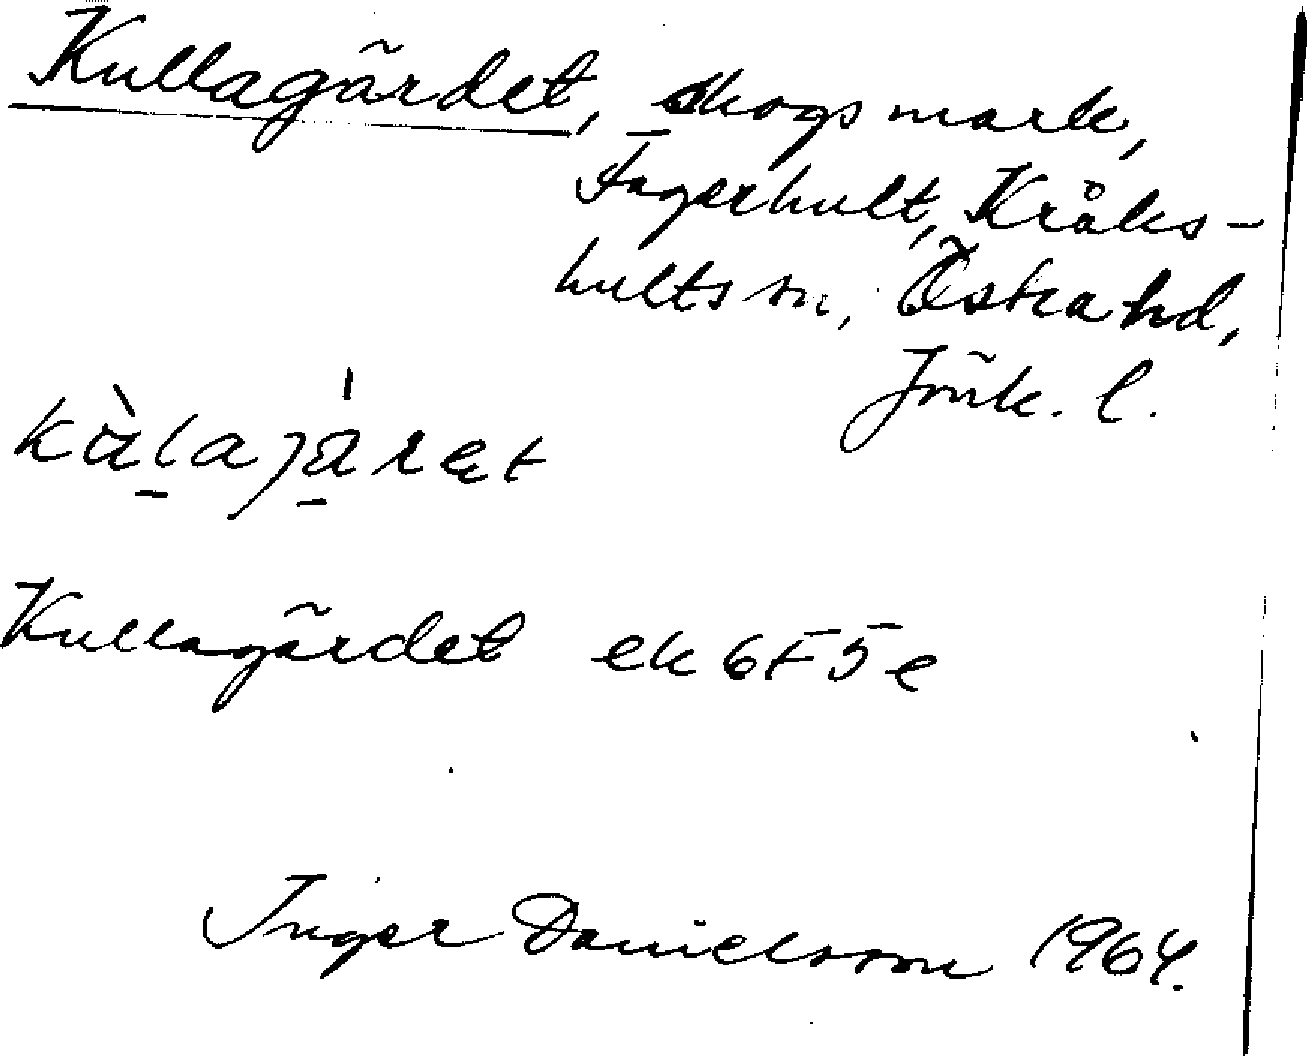 Kullagärdet, skogsmark,
Fagerhult, Kråks-
hults sn, Östra hd,
Jönk. l.
kàlajáret
Kullagärdet ek 6F5e
Inger Danielsson 1964.